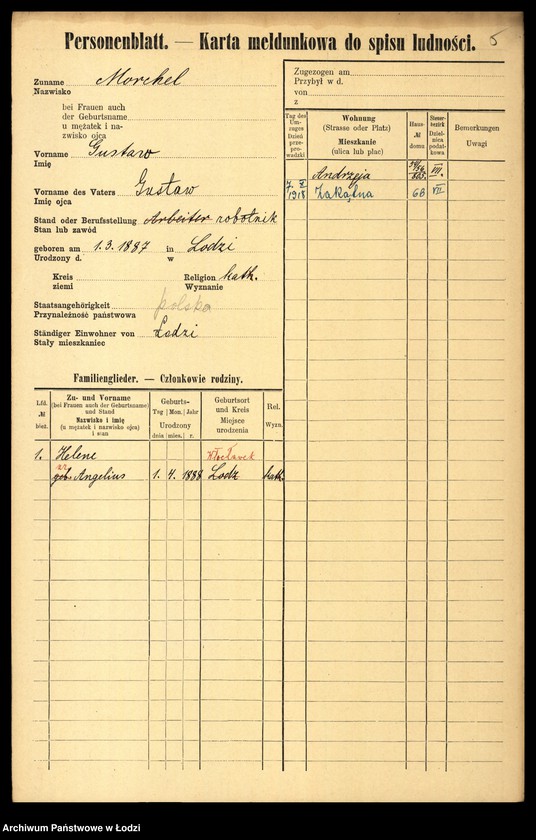 Personenblatt. — Karta meldunkowa do spisu ludności. 5
Zuname Morchel
Nazwisko
bei Frauen auch
der Geburtsname
u mężatek i na-
zwisko ojca
Vorname Gustaw
Imię
Vorname des Vaters Gustaw
Imię ojca
Stand oder Berufsstellung Arbeiter robotnik
Stan lub zawód
geboren am 1.3.1887 in Lodzi
Urodzony d. w
Kreis Religion kath.
ziemi Wyznanie
Staatsangehörigkeit polska
Przynależność państwowa
Ständiger Einwohner von Lodzi
Stały mieszkaniec
Zugezogen am
Przybył w d.
von
z
Tag des Um-zuges Dzień prze-prowadzki
Wohnung
(Strasse oder Platz)
Mieszkanie
(ulica lub plac)
Haus-
№
domu
Steuer-bezirk Dziel-nica podat-kowa
Bemerkungen
Uwagi
Andrzeja VII.
7 X 1918 Zakątna 68 VII
Familienglieder. — Członkowie rodziny.
Lfd.
№
bież.
Zu- und Vorname
(bei Frauen auch der Geburtsname)
und Stand
Nazwisko i imię
(u mężatek i nazwisko ojca)
i stan
Geburts-
Tag Mon. Jahr
Urodzony
dnia mies. r.
Geburtsort
und Kreis
Miejsce
urodzenia
Rel.
Wyzn.
1. Helene Włocławek
geb. Angelius 1. 4. 1888 Lodz kath.
Archiwum Państwowe w Łodzi